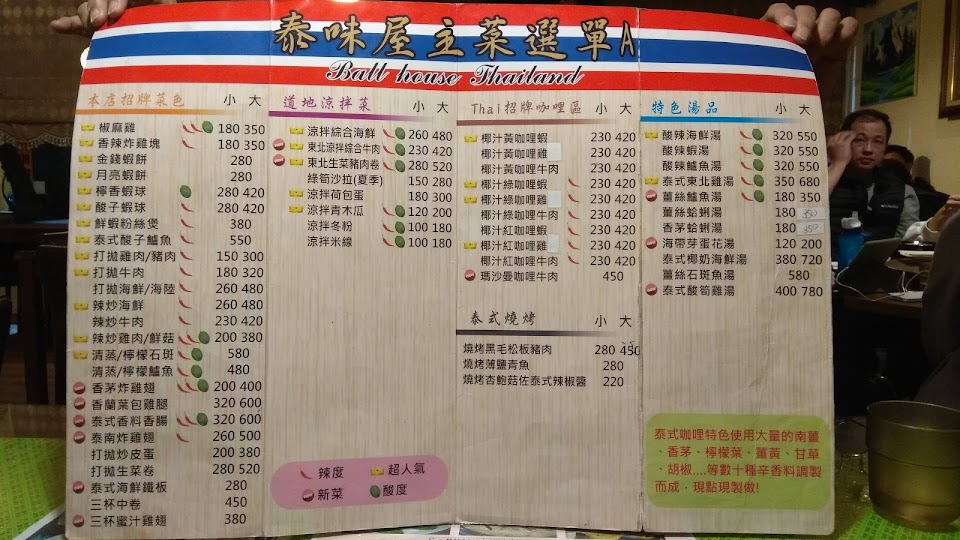 泰味屋主菜選單A
Ball house Thailand
本店招牌菜色 小 大
椒麻雞 180 350
香辣炸雞塊 180 350
金錢蝦餅 280
月亮蝦餅 280
檸香蝦球 280 420
酸子蝦球 280 420
鮮蝦粉絲煲 380
泰式酸子鱸魚 550
打拋雞肉/豬肉 150 300
打拋牛肉 180 320
打拋海鮮/海陸 260 480
辣炒海鮮 260 480
辣炒牛肉 230 420
辣炒雞肉/鮮菇 200 380
清蒸/檸檬石斑 580
清蒸/檸檬鱸魚 480
香茅炸雞翅 200 400
香蘭葉包雞腿 320 600
泰式香料香腸 320 600
泰南炸雞翅 260 500
打拋炒皮蛋 200 380
打拋生菜卷 280 520
泰式海鮮鐵板 280
三杯中卷 450
三杯蜜汁雞翅 380
道地涼拌菜 小 大
涼拌綜合海鮮 260 480
東北涼拌綜合牛肉 230 420
東北生菜豬肉卷 280 520
綠筍沙拉(夏季) 150 280
涼拌荷包蛋 180 300
涼拌青木瓜 120 200
涼拌冬粉 100 180
涼拌米線 100 180
辣度 超人氣
新菜 酸度
Thai招牌咖哩區 小 大
椰汁黃咖哩蝦 230 420
椰汁黃咖哩雞 230 420
椰汁黃咖哩牛肉 230 420
椰汁綠咖哩蝦 230 420
椰汁綠咖哩雞 230 420
椰汁綠咖哩牛肉 230 420
椰汁紅咖哩蝦 230 420
椰汁紅咖哩雞 230 420
椰汁紅咖哩牛肉 230 420
瑪沙曼咖哩牛肉 450
泰式燒烤 小 大
燒烤黑毛松板豬肉 280 450
燒烤薄鹽青魚 280
燒烤杏鮑菇佐泰式辣椒醬 220
特色湯品 小 大
酸辣海鮮湯 320 550
酸辣蝦湯 320 550
酸辣鱸魚湯 320 550
泰式東北雞湯 350 680
薑絲鱸魚湯 180 350
薑絲蛤蜊湯 180 350
香茅蛤蜊湯 180 350
海帶芽蛋花湯 120 200
泰式椰奶海鮮湯 380 720
薑絲石斑魚湯 580
泰式酸筍雞湯 400 780
泰式咖哩特色使用大量的南薑
、香茅、檸檬葉、薑黃、甘草
、胡椒....等數十種辛香料調製
而成，現點現製做!